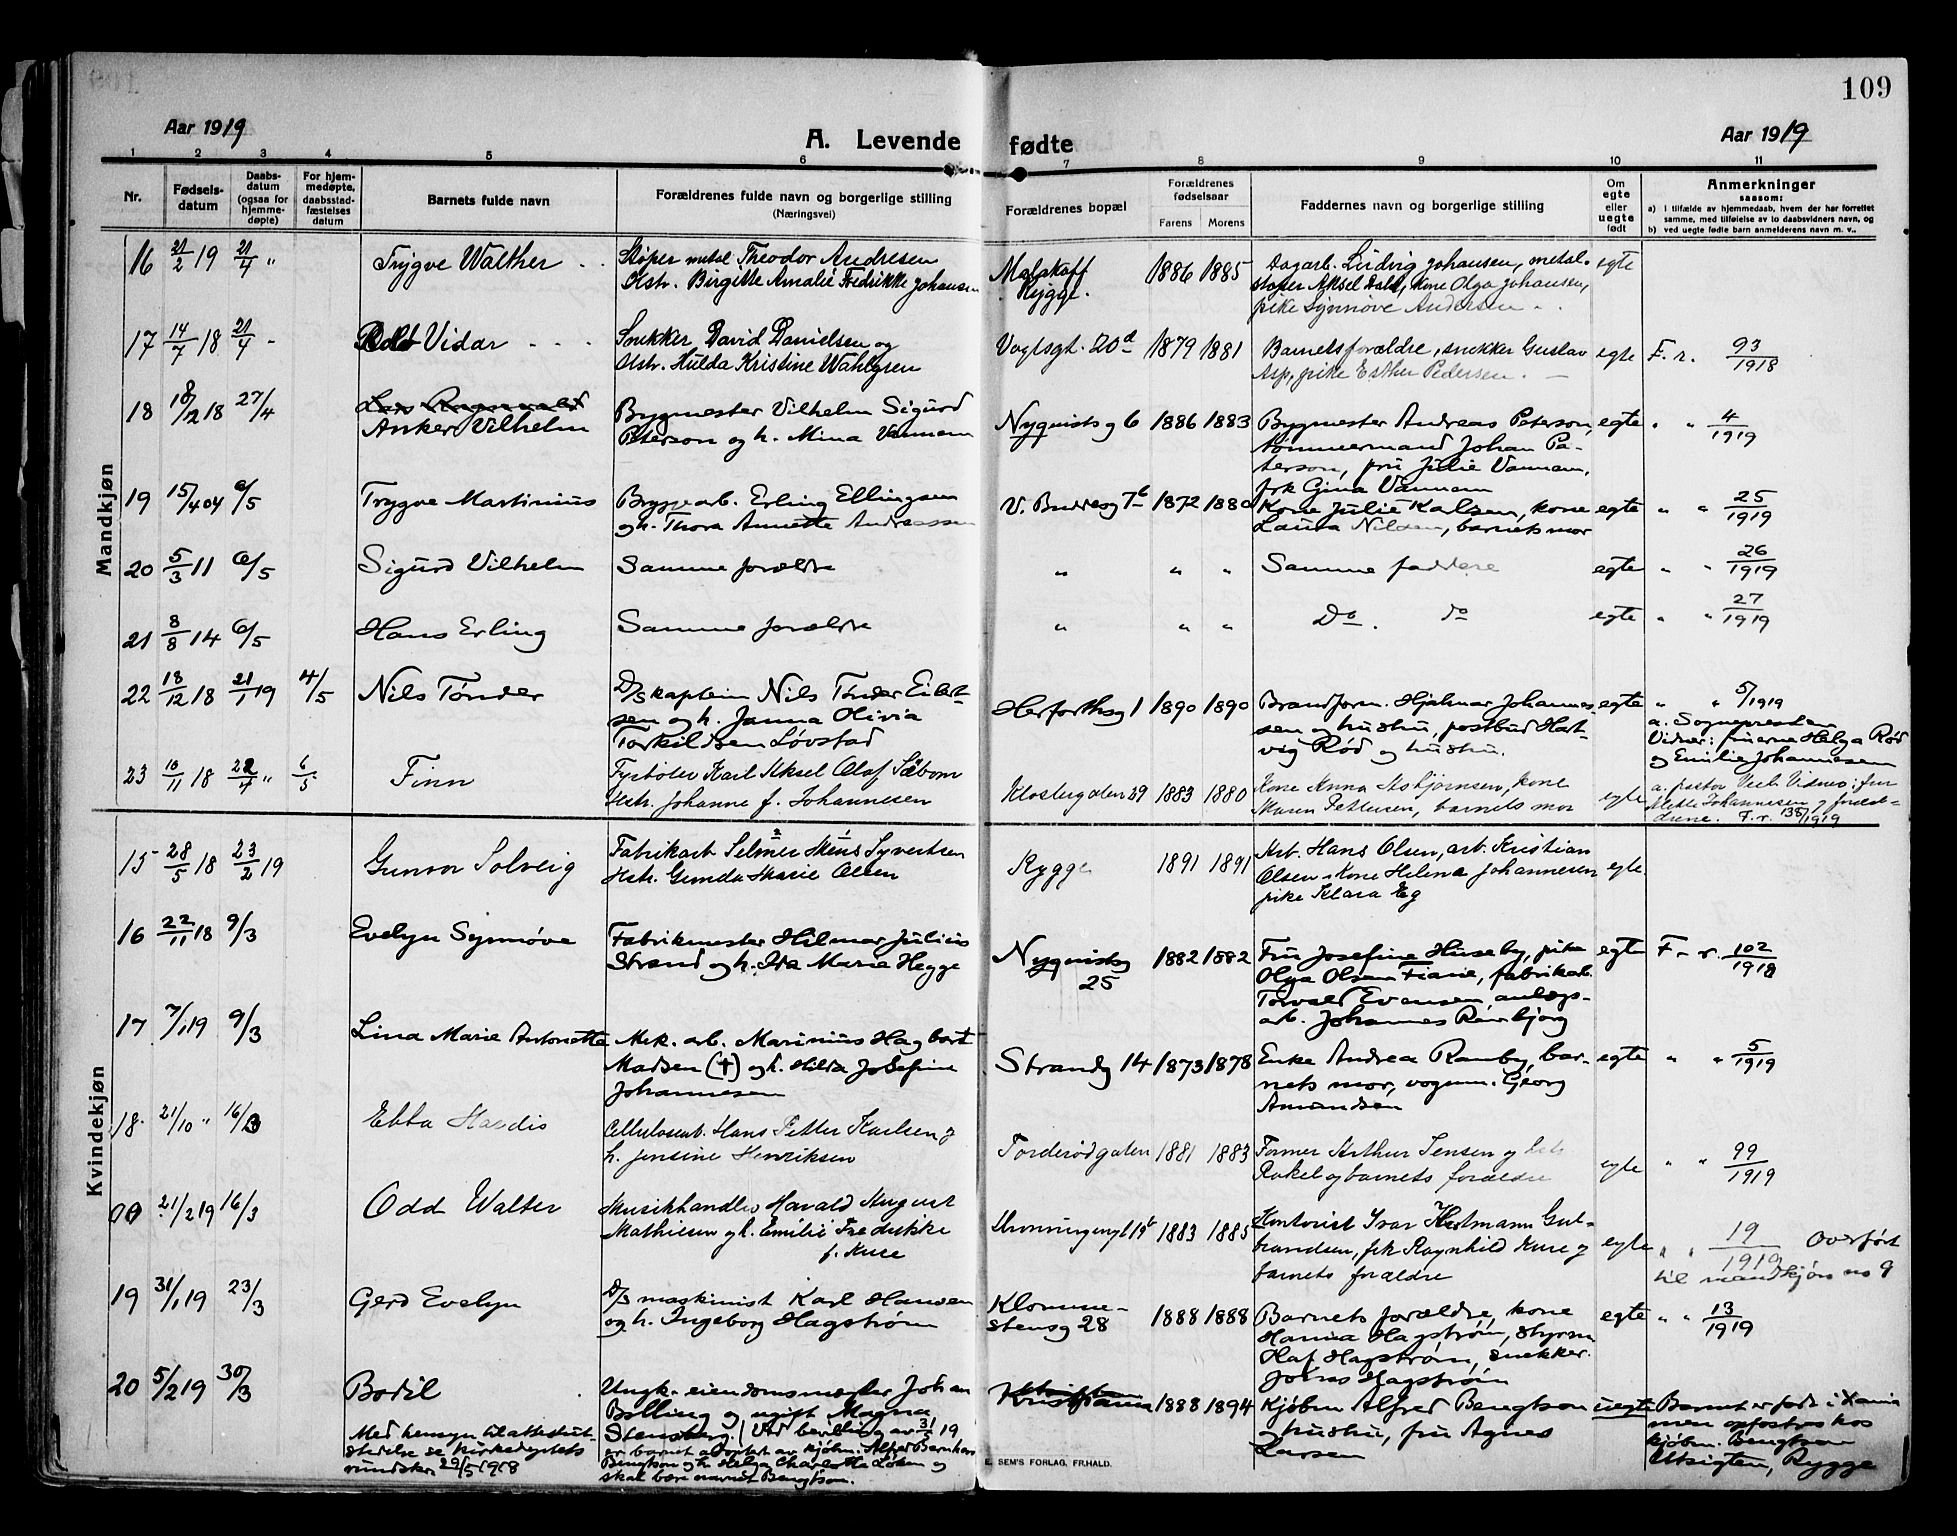 109
Aar 1919
A. Levende fødte
Aar 1919
1 2 3 4 5 6 7 8 9 10 11
Nr.
Fødsels-
datum
Daabs-
datum
(ogsaa for
hjemme-
døpte)
For hjem-
medøpte,
daabsstad-
fæstelses
datum
Barnets fulde navn
Forældrenes fulde navn og borgerlige stilling
(Næringsvei)
Forældrenes bopæl
Forældrenes
fødselsaar
Farens Morens
Faddernes navn og borgerlige stilling
Om
egte
eller
uegte
født
Anmerkninger
saasom:
a) i tilfælde av hjemmedaab, hvem der har forrettet
samme, med tilføielse av to daabsvidners navn, og
b) ved uegte fødte barn anmelderens navn m. v.,
Mandkjøn
16 21/2 19 21/4 "
Trygve Walther
Støper metal Theodor Andresen
Hstr. Birgitte Amalie Fredrikke Johansen
Malakoff
Rygge.
1886 1885
Dagarb. Ludvig Johansen, metal-
støper Aksel Dahl, kone Olga Johansen,
pike Synnøve Andersen
egte
17 14/7 18 21/4 -
Vidar
Snekker David Danielsen og
Hstr. Hulda Kristine Wahlgren
Vogtsgt. 20d
1879 1881
Barnets forældre, snekker Gustav
Asp, pike Esther Pedersen.
egte
F. r. 93/1918
18 18/12 18 27/4
Lars Ragnvald
Anker Vilhelm
Bygmester Vilhelm Sigurd
Peterson og h. Mina Vannem
Nyquistsg 6
1886 1883
Bygmester Andreas Peterson,
tømmermand Johan Pe-
terson, fru Julie Vannem,
frk Gina Vannem
egte
" " 4/1919
19 15/4 04 6/5
Trygve Martinius
Bryggearb. Erling Ellingsen
og h. Thora Annette Andreassen
V. Bredesg 7b
1872 1880
Kone Julie Karlsen, kone
Laura Nilsen, barnets mor
egte
" " 25/1919
20 5/3 11 6/5
Sigurd Vilhelm
Samme forældre
" " "
Samme faddere
egte
" " 26/1919
21 8/8 14 6/5
Hans Erling
Samme forældre
" " "
Do. do
egte
" " 27/1919
22 18/12 18 21/1 19 4/5
Nils Tønder
D/s kaptein Nils Tønder Eilert-
sen og h. Janna Olivia
Torkildsen Løvstad
Herforthsg 1
1890 1890
Brandform. Hjalmar Johannes-
sen og hustru, postbud Hart-
vig Rød og hustru.
egte
" " 5/1919
a. Sognepresten
Vidner: fruerne Helga Rød
og Emilie Johannesen
23 10/11 18 22/4 " 6/5
Finn
Fyrbøter Karl Aksel Olaf Säbom
Hstr. Johanne f. Johannesen
Klostergaten 29
1883 1880
Kone Anna Asbjørnsen, kone
Maren Pettersen, barnets mor
egte
a. pastor Vidner: fru
Johannesen og foræl-
drene. F.r. 138/1919
Kvindekjøn
15 28/5 18 23/2 19
Gunvor Solveig
Fabrikarb Selmer Møns Syvertsen
Hstr. Gunda Marie Olsen
Rygge
1891 1891
Arb. Hans Olsen, arb. Kristian
Olsen, kone Helene Johannesen
pike Klara Eg
egte
16 22/11 18 9/3
Evelyn Synnøve
Fabrikmester Hilmar Julius
Strand og h. Ida Marie Hegge
Nyquistsg
25
1882 1882
Fru Josefine Huseby, pike
Olga Olsen Fiane, fabrikarb.
Torvald Evensen, anlegs-
arb. Johannes Rørbjørg
egte
F. r. 102/1918
17 7/1 19 9/3
Lina Marie Antonette
Mek. arb. Marinius Hagbart
Madsen (†) og h. Hilda Josefine
Johannesen
Strandg 14
1873 1878
Enke Andrea Ramby, bar-
nets mor, vognm. Georg
Amundsen
egte
" " 5/1919
18. 21/10 " 16/3
Ebba Hardis
Cellulosearb. Hans Petter Karlsen og
h. Jensine Henriksen
Torderødgaten
1881 1883
Former Arthur Jensen og
Rakel og barnets forældre
egte
" " 99/1919
21/2 19 16/3
Odd Walter
Musikhandler Harald August
Mathiesen og h. Emilie Fredrikke
f. Kure
Dronningensgt 19b
1883 1885
Kontorist Ivar Hartmann Gul-
brandsen, frk Ragnhild Kure og
barnets forældre
egte
" " 19/1919 Overført
til mandkjøn no 9
19 31/1 19 23/3
Gerd Evelyn
D/s maskinist Karl Hansen
og h. Ingeborg Hagstrøm
Klomme-
stensg 28
1888 1888
Barnets forældre, kone
Hanna Hagstrøm, styrm
Olaf Hagstrøm, snekker
Johs Hagstrøm
egte
" " 13/1919
20 5/2 19 30/3
Bodil
Med hensyn til attestut-
stedelse se kirkedeptets
rundskr. 29/5 1918
Ungk. eiendomsmægler Johan
Bølling og ugift Magna
Stensberg. (Ved bevilling av 31/5 19
er barnet adoptert av kjøbm. Alfred Bernhard
Bengtson og h. Helga Charlotte Løken og
skal bære navnet Bengtson.
Kristiania
1888 1894
Kjøbm Alfred Bengtson
og hustru, fru Agnes
Larsen
uegte
Barnet er født i Xania
men opfostres hos
kjøbm. Bengtson
Utsigten, Rygge
E. SEM'S FORLAG, FR.HALD.